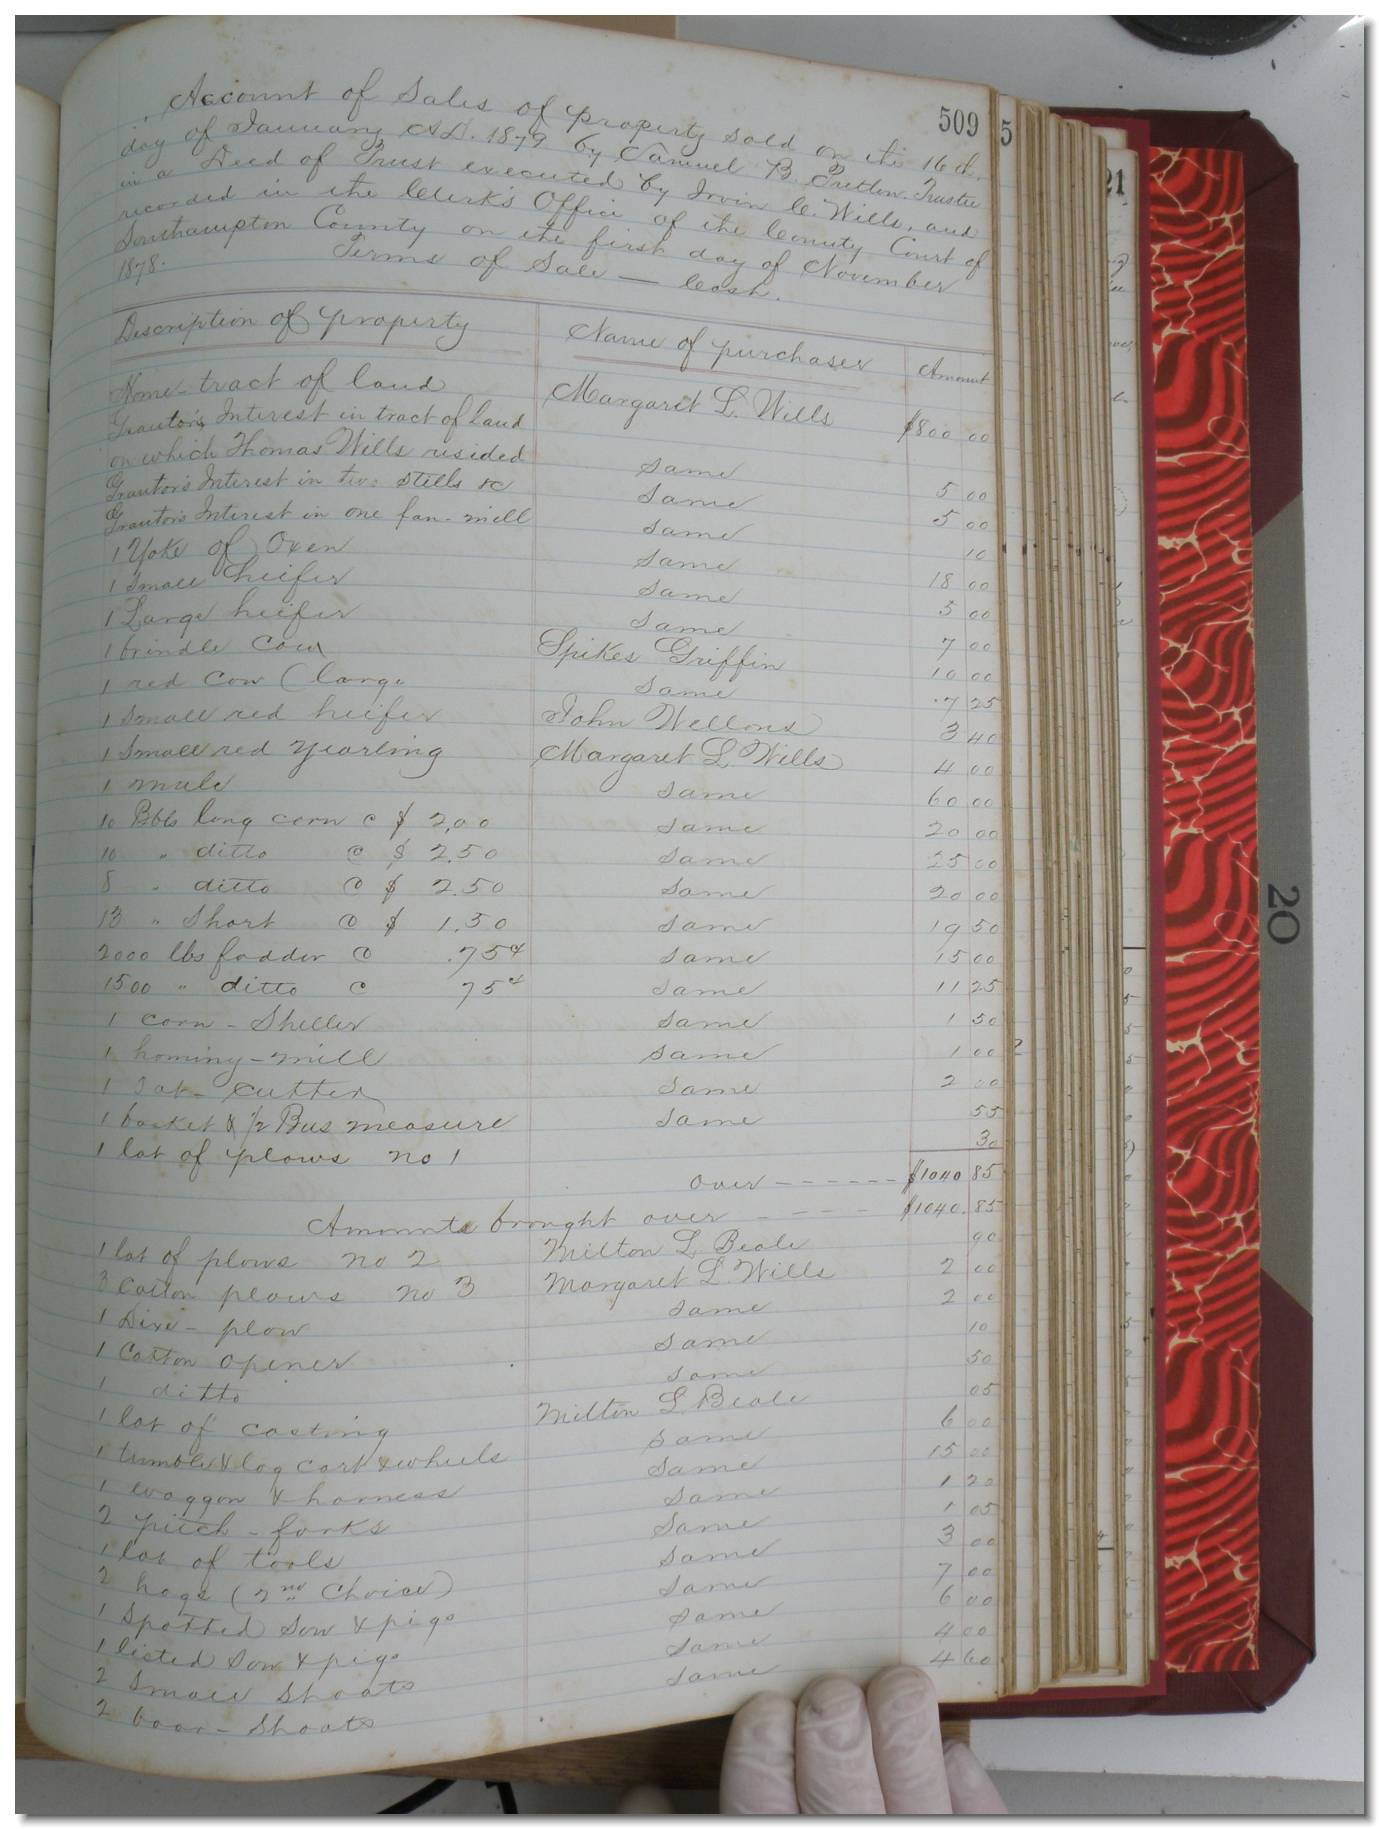 509
Account of Sales of property sold on the 16th
day of January A.D. 1879 by Samuel B. Pretlow, Trustee
in a Deed of Trust executed by Irvin C. Wills, and
recorded in the Clerk's Office of the County Court of
Southampton County on the first day of November
1878.
Terms of Sale — Cash.
Description of property Name of purchaser Amount
Home tract of land Margaret L. Wills $800 00
Grantor's Interest in tract of land
on which Thomas Wills resided same 5 00
Grantor's Interest in two stills &c same 5 00
Grantor's Interest in one fan-mill same 10
1 Yoke of Oxen same 18 00
1 Small heifer same 5 00
1 Large heifer same 7 00
1 brindle Cow Spikes Griffin 10 00
1 red Cow (large same 7 25
1 Small red heifer John Wellons 3 40
1 Small red yearling Margaret L. Wills 4 00
1 mule same 60 00
10 Bbls long corn @ $ 2.00 same 20 00
10 " ditto @ $ 2.50 same 25 00
8 " ditto @ $ 2.50 same 20 00
13 " Short @ $ 1.50 same 19 50
2000 lbs fodder @ .75¢ same 15 00
1500 " ditto @ 75¢ same 11 25
1 corn-Sheller same 1 50
1 hominy-mill same 1 00
1 cutter same 2 00
1 basket & 1/2 Bus measure same 55
1 lot of plows no 1 30
over ------ $1040 85
Amounts brought over ---- $1040.85
1 lot of plows no 2 Milton L. Beale 90
3 Cotton plows no 3 Margaret L. Wills 2 00
1 Dixe-plow same 2 00
1 Cotton opener same 10
1 ditto same 50
1 lot of casting Milton L. Beale 05
1 tumble & log cart & wheels same 6 00
1 waggon & harness same 15 00
2 pitch-forks same 1 20
1 lot of tools same 1 05
2 hogs (2nd Choice) same 3 00
1 Spotted Sow & pigs same 7 00
1 listed Sow & pigs same 6 00
2 Small Shoats same 4 00
2 boar-Shoats same 4 60
5
21
20